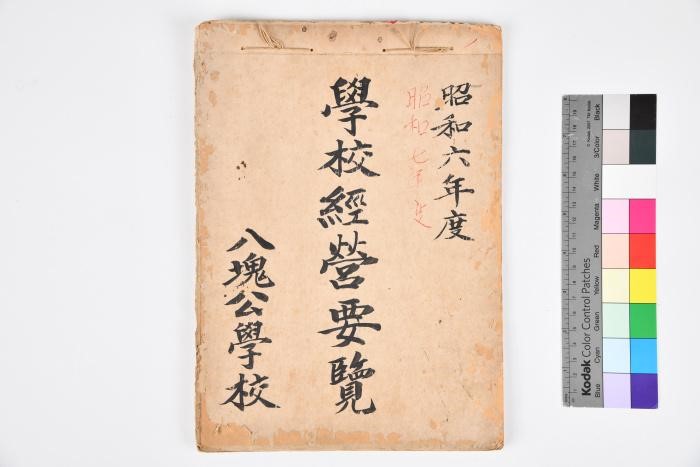 昭和六年度
昭和七年度
學校經營要覽
八塊公學校
Kodak Color Control Patches
Blue Cyan Green Yellow Red Magenta White 3/Color Black